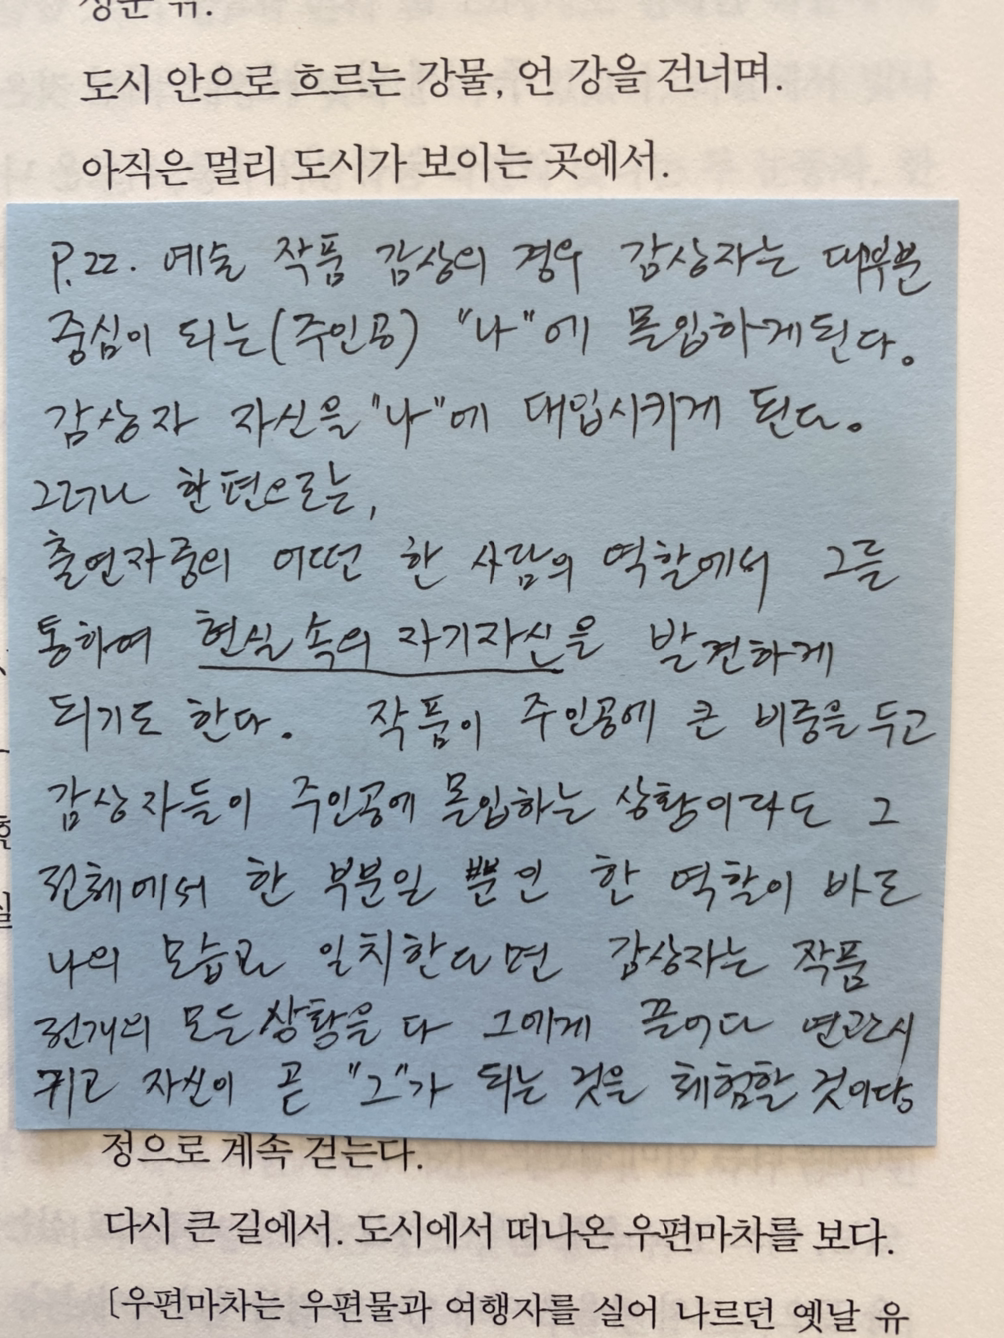 도시 안으로 흐르는 강물, 언 강을 건너며.
아직은 멀리 도시가 보이는 곳에서.
P.22. 예술 작품 감상의 경우 감상자는 대부분
중심이 되는(주인공) "나"에 몰입하게된다.
감상자 자신을 "나"에 대입시키게 된다.
그러나 한편으로는,
출연자중의 어떤 한 사람의 역할에서 그를
통하여 현실 속의 자기자신을 발견하게
되기도 한다. 작품이 주인공에 큰 비중을 두고
감상자들이 주인공에 몰입하는 상황이라도 그
전체에서 한 부분일 뿐인 한 역할이 바로
나의 모습과 일치한다면 감상자는 작품
전개의 모든 상황을 다 그에게 끌어다 연관시
키고 자신이 곧 "그"가 되는 것을 체험할 것이다.
정으로 계속 걷는다.
다시 큰 길에서. 도시에서 떠나온 우편마차를 보다.
[우편마차는 우편물과 여행자를 실어 나르던 옛날 유